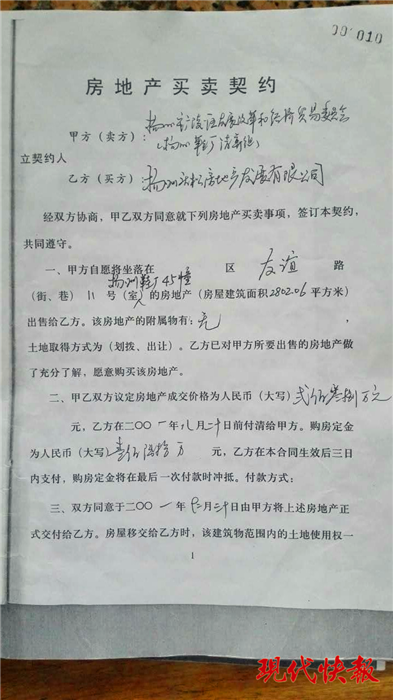 001010
房地产买卖契约
甲方（卖方）：扬州市广陵区发展改革和经济贸易委员会
（扬州鞋厂清算组）
立契约人
乙方（买方）：扬州 房地产发展有限公司
经双方协商，甲乙双方同意就下列房地产买卖事项，签订本契约，
共同遵守。
一、甲方自愿将坐落在 区 友谊 路
扬州鞋厂45幢
（街、巷） 11 号（室）的房地产（房屋建筑面积2802.06平方米）
出售给乙方。该房地产的附属物有：无 ，
土地取得方式为（划拨、出让）。乙方已对甲方所要出售的房地产做
了充分了解，愿意购买该房地产。
二、甲乙双方议定房地产成交价格为人民币（大写）贰佰叁拾捌万元
元，乙方在二〇〇一年 月二十日前付清给甲方。购房定金
为人民币（大写）壹佰伍拾万 元，乙方在本合同生效后三日
内支付，购房定金将在最后一次付款时冲抵。付款方式：
三、双方同意于二〇〇一年十二月二十日由甲方将上述房地产正
式交付给乙方。房屋移交给乙方时，该建筑物范围内的土地使用权一
1
现代快报